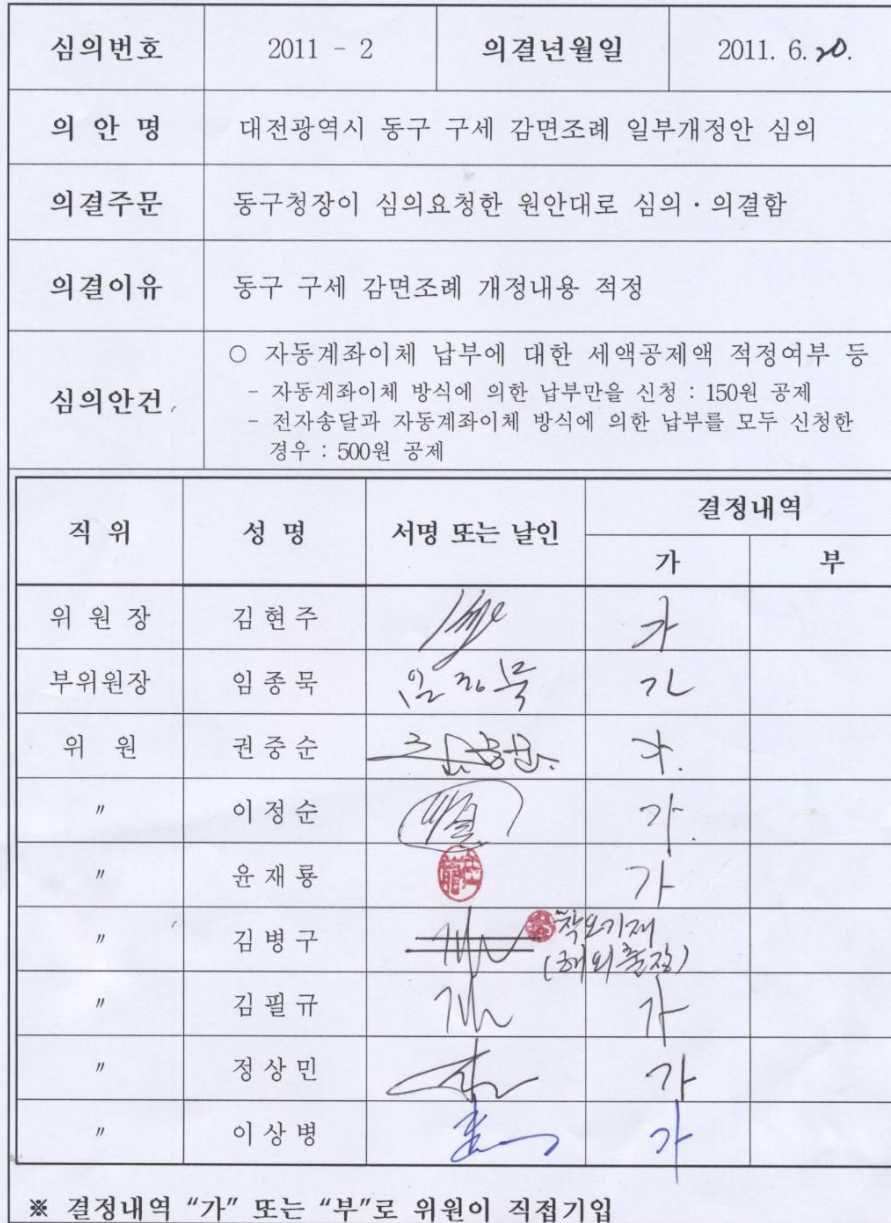 심의번호 2011 - 2 의결년월일 2011. 6. 20.
의 안 명 대전광역시 동구 구세 감면조례 일부개정안 심의
의결주문 동구청장이 심의요청한 원안대로 심의·의결함
의결이유 동구 구세 감면조례 개정내용 적정
심의안건
○ 자동계좌이체 납부에 대한 세액공제액 적정여부 등
- 자동계좌이체 방식에 의한 납부만을 신청 : 150원 공제
- 전자송달과 자동계좌이체 방식에 의한 납부를 모두 신청한
경우 : 500원 공제
직 위 성 명 서명 또는 날인 결정내역
가 부
위 원 장 김현주 가
부위원장 임종묵 임종묵 가
위 원 권중순 가.
〃 이정순 가.
〃 윤재룡 가
〃 김병구 착오기재
(해외출장)
〃 김필규 가
〃 정상민 가
〃 이상병 가
※ 결정내역 “가” 또는 “부”로 위원이 직접기입